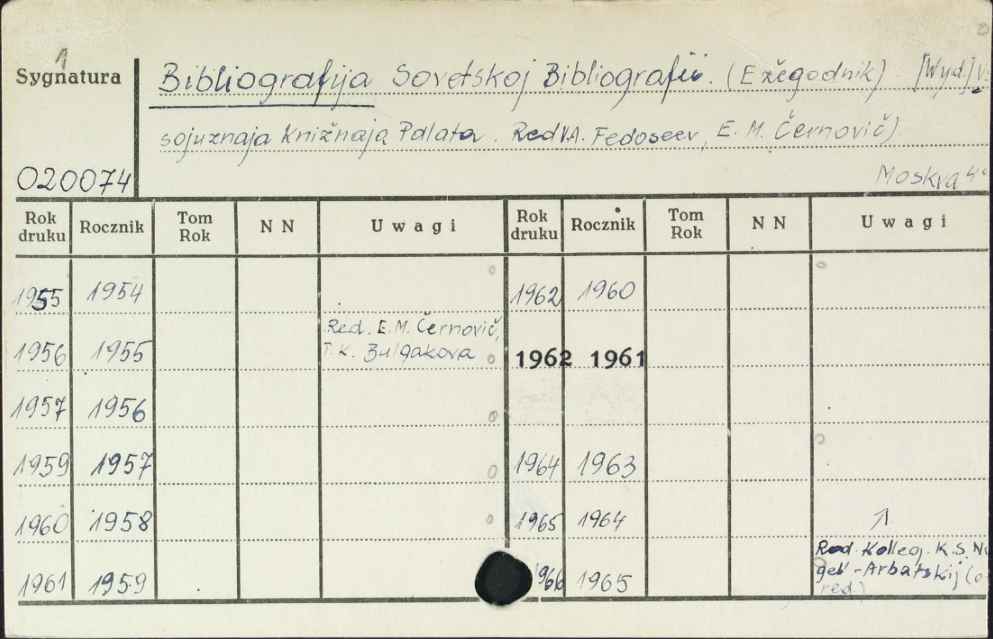 1
Sygnatura
Bibliografija Sovetskoj Bibliografii. (Ežegodnik). [Wyd.] Vs
sojuznaja Knižnaja Palata. Red. V.A. Fedoseev, E. M. Černovič)
020074
Moskva 4°
Rok druku Rocznik Tom Rok N N Uwagi Rok druku Rocznik Tom Rok N N Uwagi
1955 1954 1962 1960
Red. E.M. Černovič,
1956 1955 T.K. Bulgakova 1962 1961
1957 1956
1959 1957 1964 1963
1960 1958 1965 1964
Red. Kolleg. K.S. Nu
geb'-Arbatskij (o
red.)
1961 1959 1966 1965